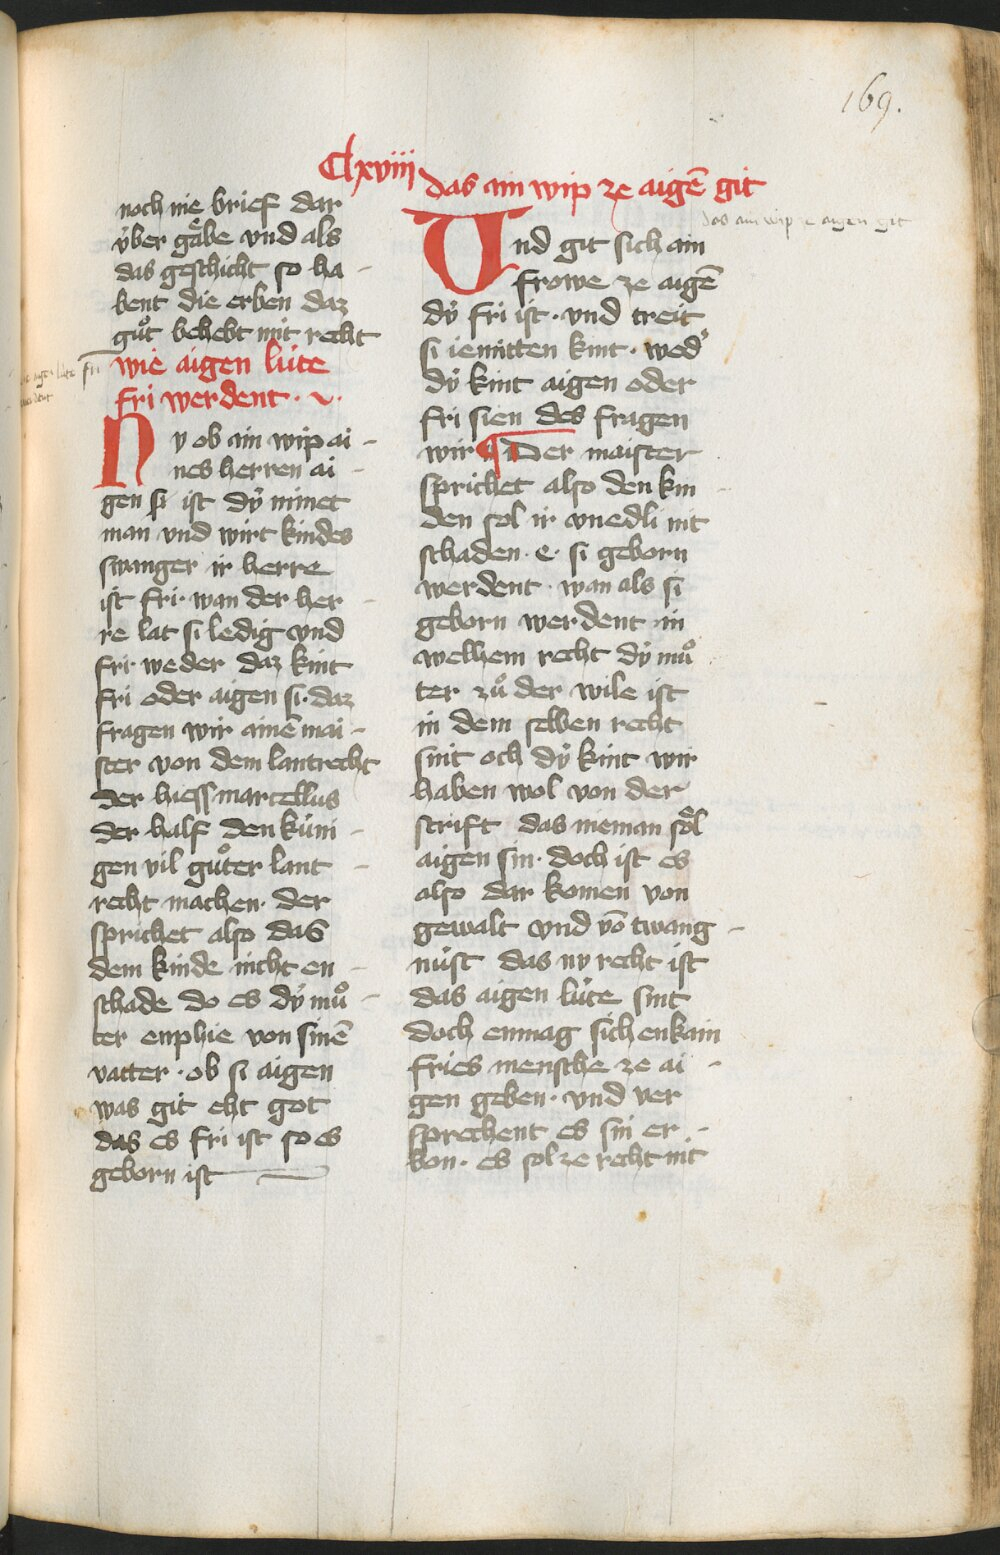 169.
Clxviii
noch nie brief dar
v̈ber gaͤbe vnd als
das geschicht so ha -
bent die erben daz
guͦt behebt mit recht
wie aigen lüte
fri werdent.
Ny ob ain wip ai -
nes herren ai -
gen si ist dÿ nimet
man vnd wirt kindes
swanger ir herre
ist fri. wan der her -
re lat si ledig vnd
fri. weder daz kint
fri oder aigen si. daz
fragen wir ainē mai -
ster von dem lantrecht
der hiess marcellus
der half den küni -
gen vil guͦter lant -
recht machen. der
sprichet also das
dem kinde nicht en -
schade do es dÿ muͦ -
ter enphie von sinē
vatter. ob si aigen
was git eht got
das es fri ist so es
geborn ist
das ain wip ze aigē git
das ain wip ze aigen git
Vnd git sich ain
frowe ze aigē
dÿ fri ist. vnd treit
si iemitten kint. wed'
dÿ kint aigen oder
fri sien des fragen
wir ¶ Der maister
sprichet also den kin -
den sol ir vnedli nit
schaden. e. si geborn
werdent. wan als si
geborn werdent in
welhem recht dÿ muͦ
ter zuͦ der wile ist
in dem selben recht
sint och dÿ kint wir
haben wol von der
scrift das nieman soͤl
aigen sin. doch ist es
also dar komen von
gewalt vnd vō twang -
nüst das ny recht ist
das aigen lüte sint
doch enmag sich enkain
fries mensche ze ai -
gen geben. vnd ver
sprechent es sin er -
bon. es sol ze recht nit